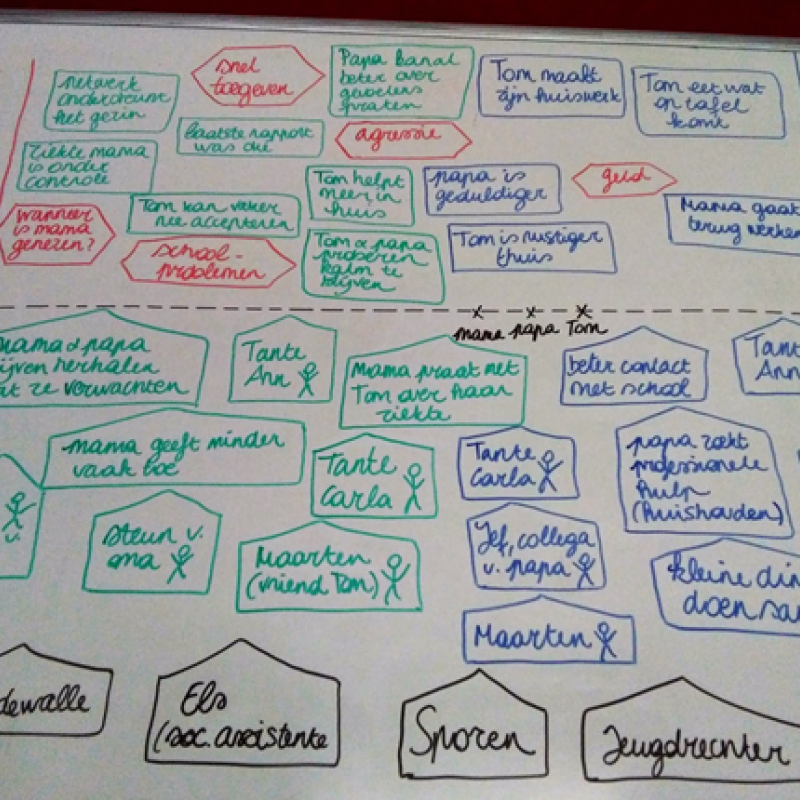 netwerk
ondersteunt
het gezin
snel
toegeven
Papa kan al
beter over
gevoelens
praten
Tom maakt
zijn huiswerk
Tom eet wat
op tafel
komt
laatste rapport
was oké
agressie
ziekte mama
is onder
controle
Tom helpt
meer in
huis
papa is
geduldiger
geld
wanneer
is mama
genezen?
Tom kan vaker
nee accepteren
Mama gaat
terug werken
school-
problemen
Tom & papa
proberen
kalm te
blijven
Tom is rustiger
thuis
x x x
mama papa Tom
mama & papa
ijven herhalen
at ze verwachten
Tante
Ann
Mama praat met
Tom over haar
ziekte
beter contact
met school
Tant
Ann
mama geeft minder
vaak toe
Tante
Carla
Tante
Carla
papa zoekt
professionele
hulp
(huishouden)
v.
steun v.
oma
Maarten
(vriend Tom)
Jef, collega
v. papa
kleine din
doen sa
Maarten
dewalle
Els
(soc. assistente
Sporen
Jeugdrechter